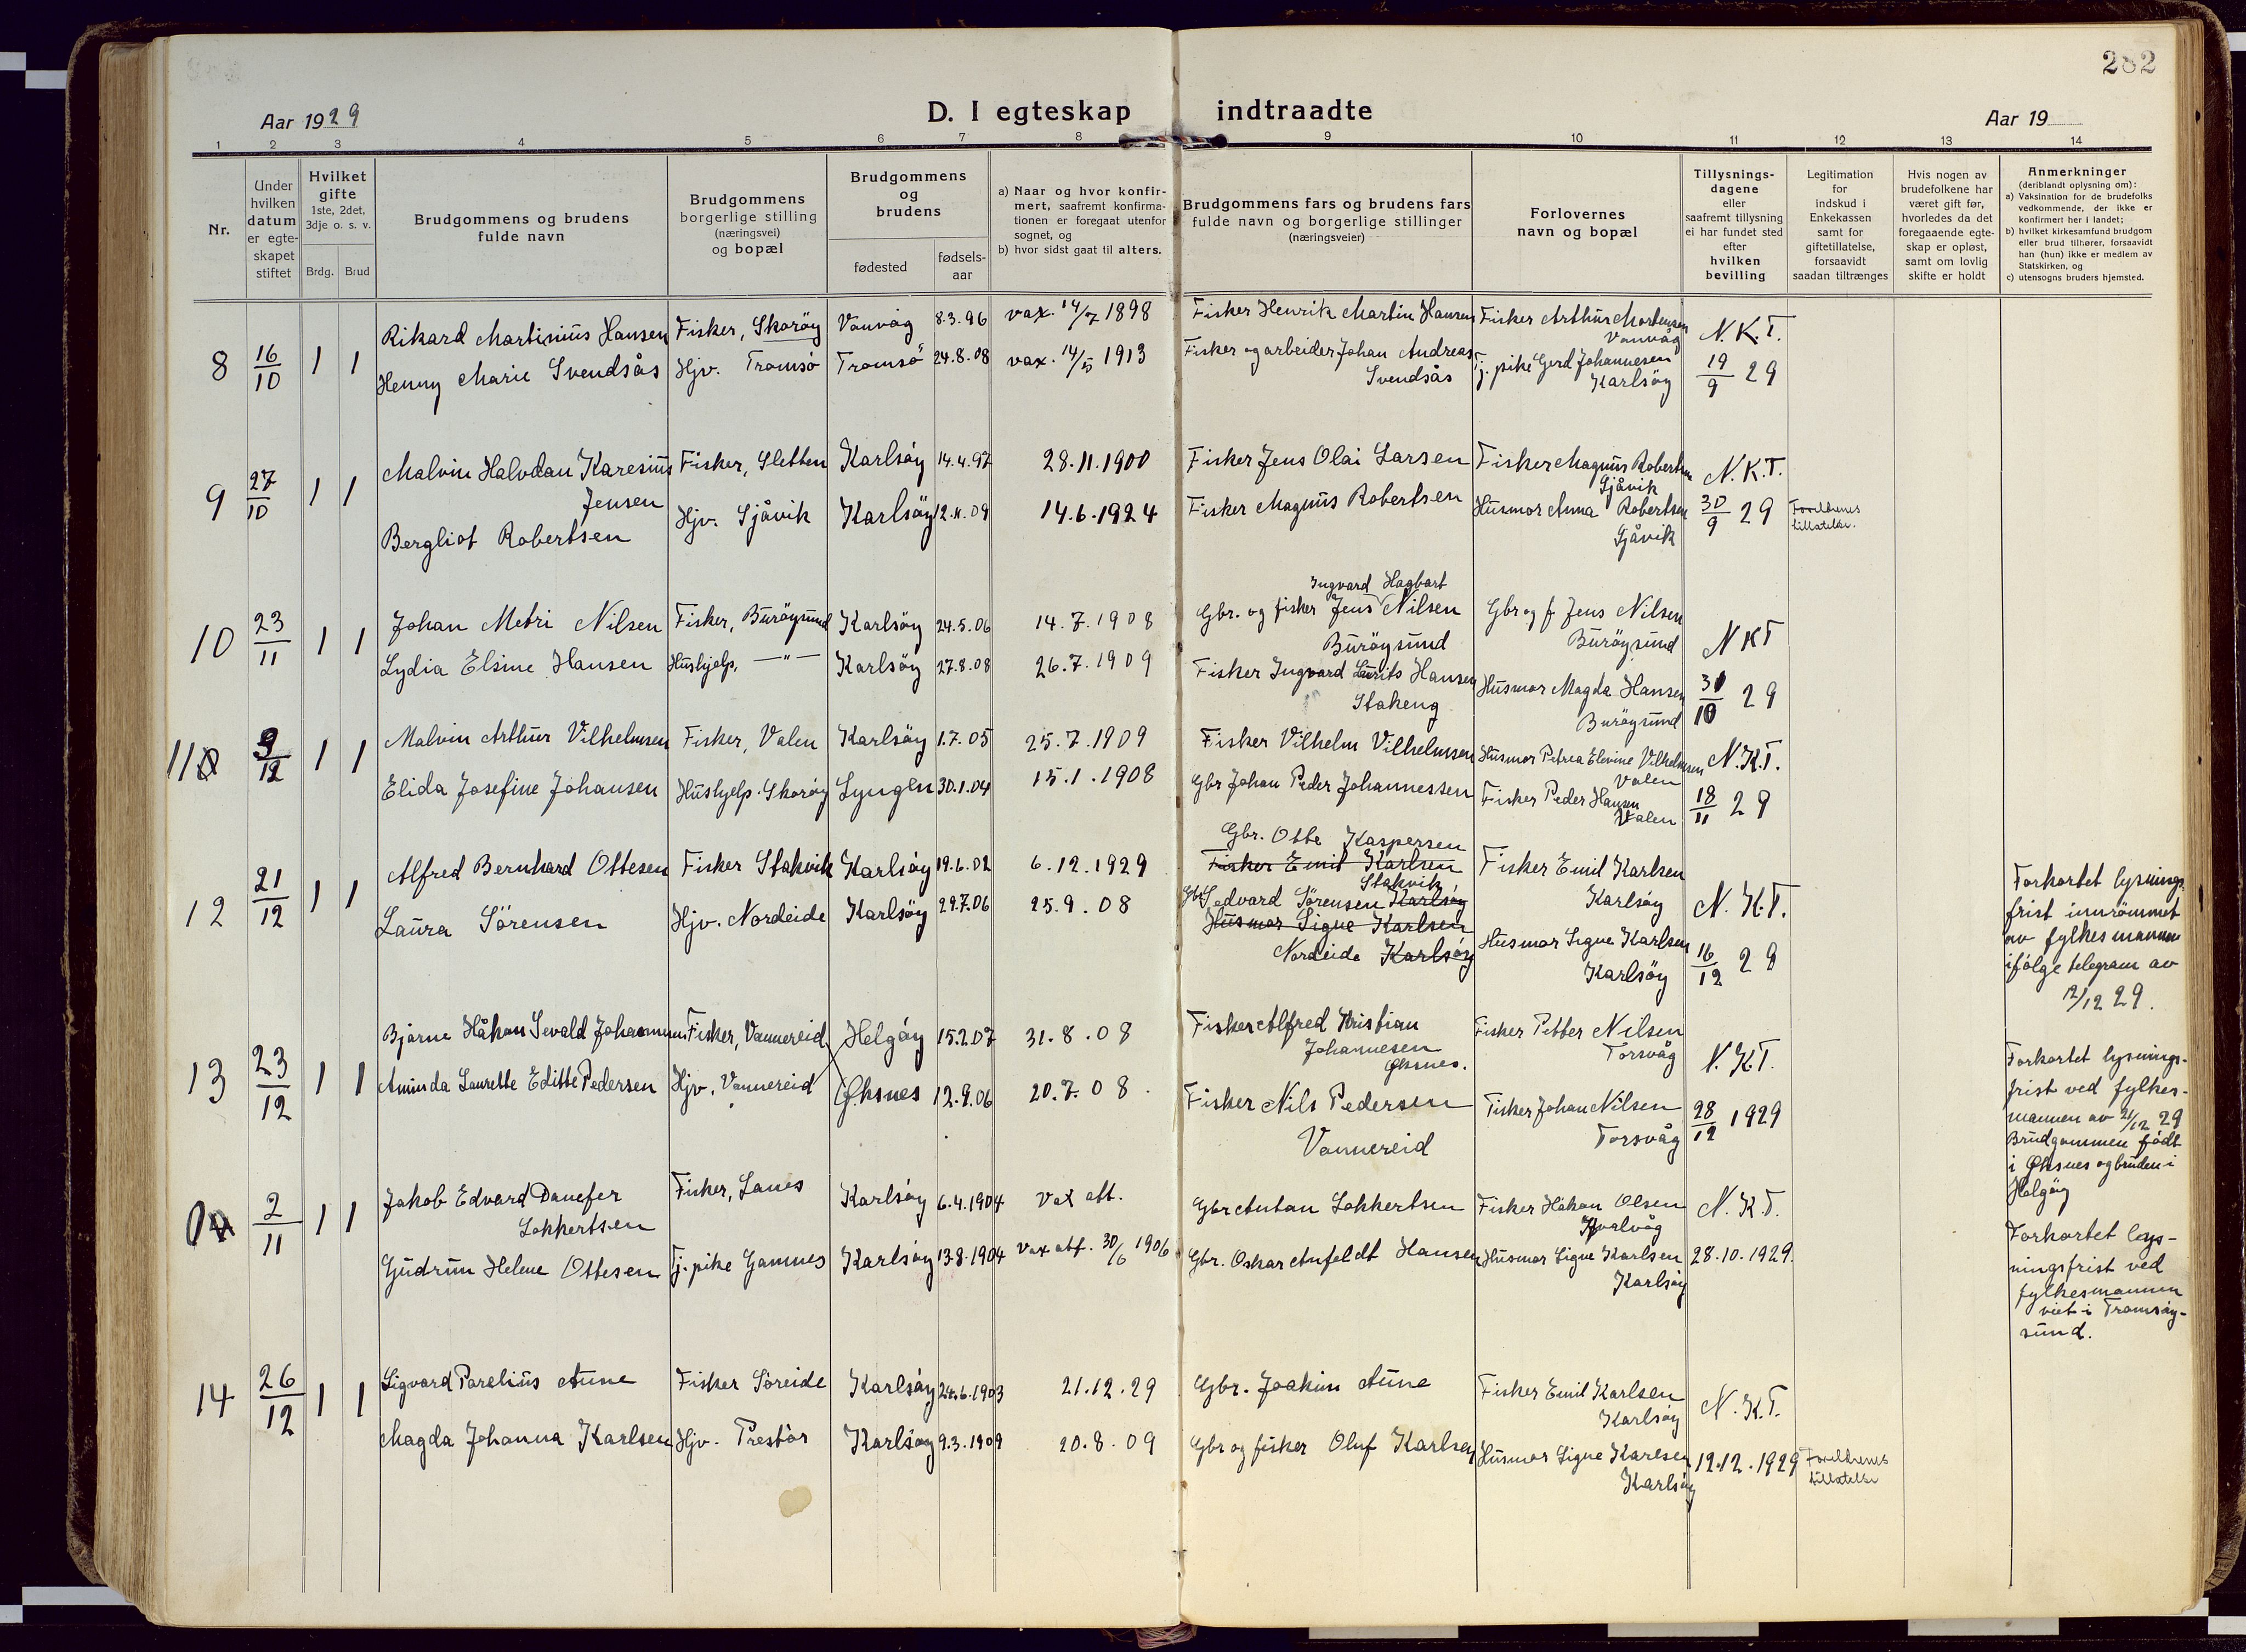 282
Aar 1929
D. I egteskap indtraadte
Aar 19
1 2 3 4 5 6 7 8 9 10 11 12 13 14
Nr.
Under hvilken datum er egte-skapet stiftet
Hvilket gifte 1ste, 2det, 3dje o. s. v.
Brdg. Brud
Brudgommens og brudens fulde navn
Brudgommens borgerlige stilling (næringsvei) og bopæl
Brudgommens og brudens
fødested
fødsels-aar
a) Naar og hvor konfir-mert, saafremt konfirma-tionen er foregaat utenfor sognet, og
b) hvor sidst gaat til alters.
Brudgommens fars og brudens fars fulde navn og borgerlige stillinger (næringsveier)
Forlovernes navn og bopæl
Tillysnings-dagene eller saafremt tillysning ei har fundet sted efter hvilken bevilling
Legitimation for indskud i Enkekassen samt for giftetillatelse, forsaavidt saadan tiltrænges
Hvis nogen av brudefolkene har været gift før, hvorledes da det foregaaende egte-skap er opløst, samt om lovlig skifte er holdt
Anmerkninger (deriblandt oplysning om):
a) Vaksination for de brudefolks vedkommende, der ikke er konfirmert her i landet;
b) hvilket kirkesamfund brudgom eller brud tilhører, forsaavidt han (hun) ikke er medlem av Statskirken, og
c) utensogns bruders hjemsted.
8 16/10 1 1
Rikard Martinius Hansen Fisker, Skorøy Vanvåg 8.3.96 vax. 14/7 1898 Fisker Henrik Martin Hansen Fisker Arthur Mortensen Vanvåg N.K.T.
Henny Marie Svendsås Hjv. Tromsö Tromsö 24.8.08 vax. 14/5 1913 Fisker og arbeider Johan Andreas Svendsås Tj. pike Gerd Johannesen Karlsöy 19/9 29
9 27/10 1 1
Malvin Halvdan Karesius Jensen Fisker, Sletten Karlsöy 14.4.97 28.11.1900 Fisker Jens Olai Larsen Fisker Magnus Robertsen Sjåvik N.K.T.
Bergliot Robertsen Hjv. Sjåvik Karlsöy 12.11.09 14.6.1924 Fisker Magnus Robertsen Husmor Anna Robertsen Sjåvik 30/9 29 Foreldrenes tillatelse.
10 23/11 1 1
Johan Metri Nilsen Fisker, Buröysund Karlsöy 24.5.06 14.7.1908 Gbr. og fisker Jens Ingvard Hagbart Nilsen Buröysund Gbr og f Jens Nilsen Buröysund N K T
Lydia Elsine Hansen Hushjelp, —"— Karlsöy 27.8.08 26.7.1909 Fisker Ingvard Laurits Hansen Stakeng Husmor Magda Hansen Buröysund 31/10 29
11 9/12 1 1
Malvin Arthur Vilhelmsen Fisker, Valen Karlsöy 1.7.05 25.7.1909 Fisker Vilhelm Vilhelmsen Husmor Petrea Elevine Vilhelmsen Valen N.K.T.
Elida Josefine Johansen Hushjelp. Skoröy Lyngen 30.1.04 15.1.1908 Gbr Johan Peder Johannessen Fisker Peder Hansen Valen 18/11 29
12 21/12 1 1
Alfred Bernhard Ottesen Fisker Stakvik Karlsöy 19.6.02 6.12.1929 Gbr. Otto Kaspersen Fisker Emil Karlsen Stakvik Fisker Emil Karlsen Karlsöy N.K.T.
Laura Sörensen Hjv. Nordeide Karlsöy 29.7.06 25.9.08 Gbr Sedvard Sörensen Karlsöy Husmor Signe Karlsen Nordeide Karlsöy Husmor Signe Karlsen Karlsöy 16/12 29
Forkortet lysnings-
frist innrömmet
av fylkesmannen
ifölge telegram av
12/12 29.
13 23/12 1 1
Bjarne Håkon Sevald Johannesen Fisker, Vannereid Helgöy 15.2.07 31.8.08 Fisker Alfred Kristian Johannesen Øksnes. Fisker Petter Nilsen Torsvåg N.K.T.
Aminda Laurette Editte Pedersen Hjv. Vannereid Øksnes 12.9.06 20.7.08 Fisker Nils Pedersen Vannereid Fisker Johan Nilsen Torsvåg 28/12 1929
Forkortet lysnings-
frist ved fylkes-
mannen av 21/12 29
Brudgommen födt
i Øksnes og bruden i
Helgöy
2/11 1 1
Jakob Edvard Danefer Lokkertsen Fisker, Lanes Karlsöy 6.4.1904 Vax att. Gbr Antan Lokkertsen Fisker Håkon Olsen Kvalvåg N.K.T.
Gudrun Helene Ottesen Tj. pike Gamnes Karlsöy 13.8.1904 Vax att. 30/6 1906 Gbr. Oskar Anfeldt Hansen Husmor Signe Karlsen Karlsöy 28.10.1929.
Forkortet lys-
ningsfrist ved
fylkesmannen
viet i Tromsöy-
sund.
14 26/12 1 1
Sigvard Parelius Aune Fisker Söreide Karlsöy 24.6.1903 21.12.29 Gbr. Joakim Aune Fisker Emil Karlsen Karlsöy N.K.T.
Magda Johanna Karlsen Hjv. Prestör Karlsöy 9.3.1909 20.8.09 Gbr og fisker Oluf Karlsen Husmor Signe Karlsen Karlsöy 12.12.1929 Foreldrenes tillatelse